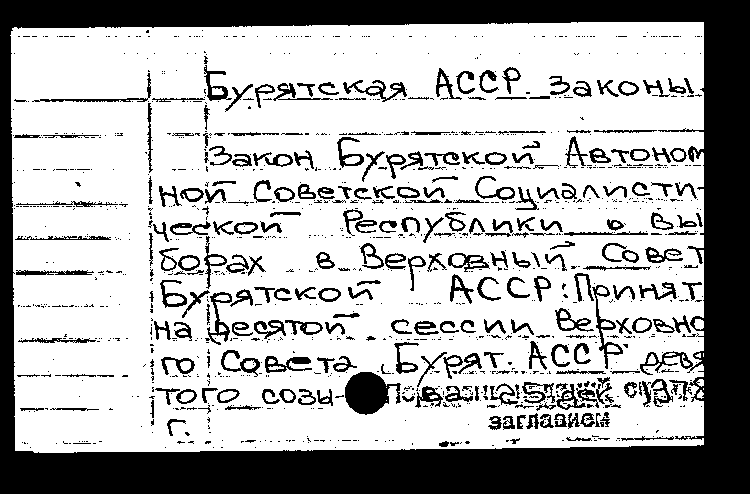 Бурятская АССР. Законы.
Закон Бурятской Автоном
ной Советской Социалисти-
ческой Республики о вы
борах в Верховный Совет
Бурятской АССР: Принят
на десятой сессии Верховно
го Совета Бурят. АССР девя
того созы- 1978
г.
заглавием